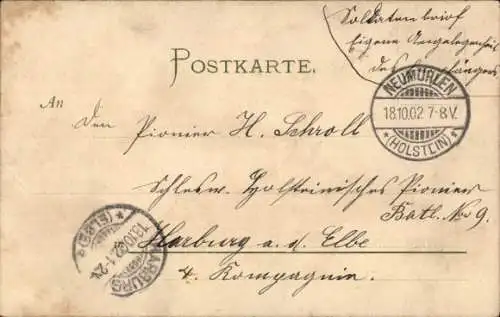 Soldatenbrief
Eigene Angelegenheit
des Empfängers
POSTKARTE.
NEUMÜHLEN
18.10.02 7-8V.
* (HOLSTEIN) *
An
den Pionier H. Schroll
Schlesw. Holsteinisches Pionier
Batl. No 9.
Harburg a. d. Elbe
4. Kompagnie.
HARBURG
18.10.02. 1-2N.
* (ELBE) *